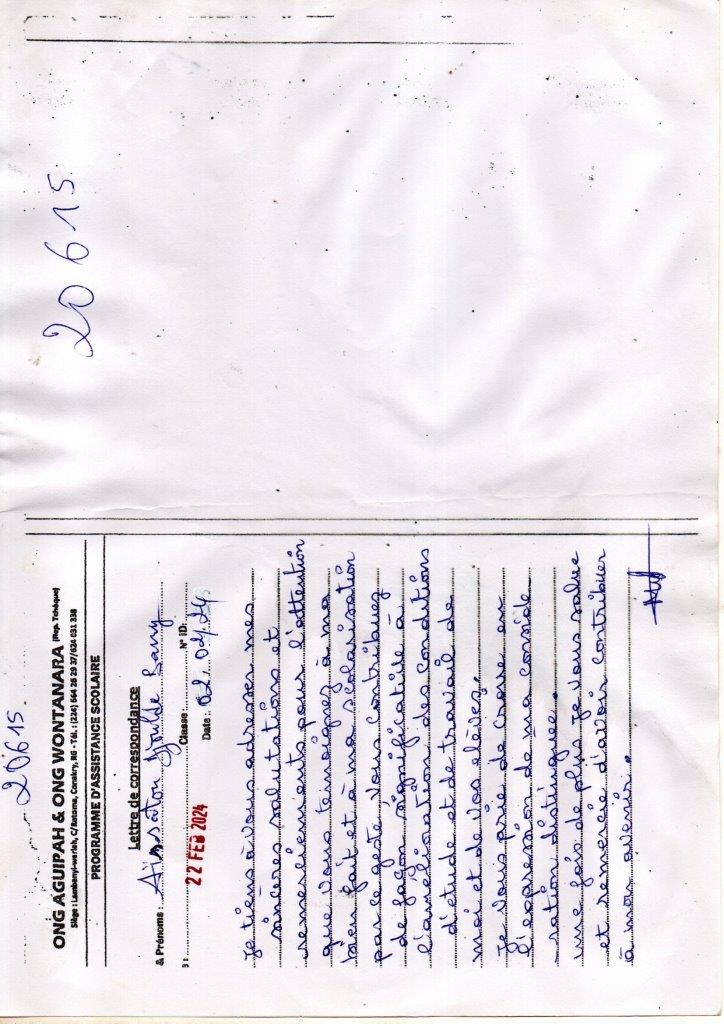 20615
20615
ONG AGUIPAH & ONG WONTANARA (Rep. Tchèque)
Siège : Lambanyi-warish, C/Ratoma, Conakry, RG - Tél. : (224) 664 26 29 37/624 031 338
PROGRAMME D'ASSISTANCE SCOLAIRE
Lettre de correspondance
& Prénoms : Aissatou Barry
Classe : N° ID:
22 FEB 2024
Date :
Je tiens à vous adresser mes
sincères salutations et
remerciements pour l'attention
que vous temoignez à ma
bien fait et à ma scolarisation
par ce geste vous contribuez
de façon significative à
l'amélioration des conditions
d'étude et de travail de
moi et de vos élèves.
Je vous prie de croire en
l'expression de ma conside-
-ration distinguée.
une fois de plus je vous salue
et remercie d'avoir contribuer
à mon avenir.